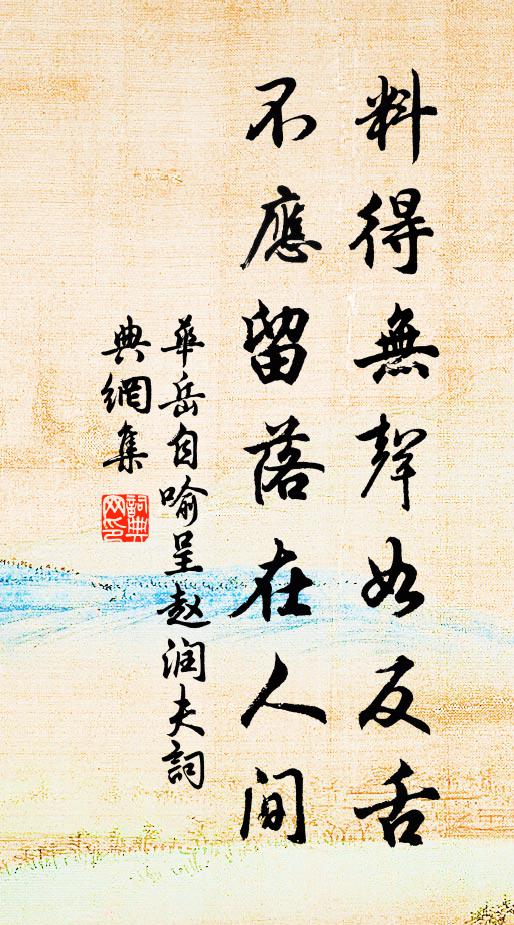 料得無聲如反舌
不應留落在人间
華岳自喻呈赵润夫詞
典網集
詞典网印